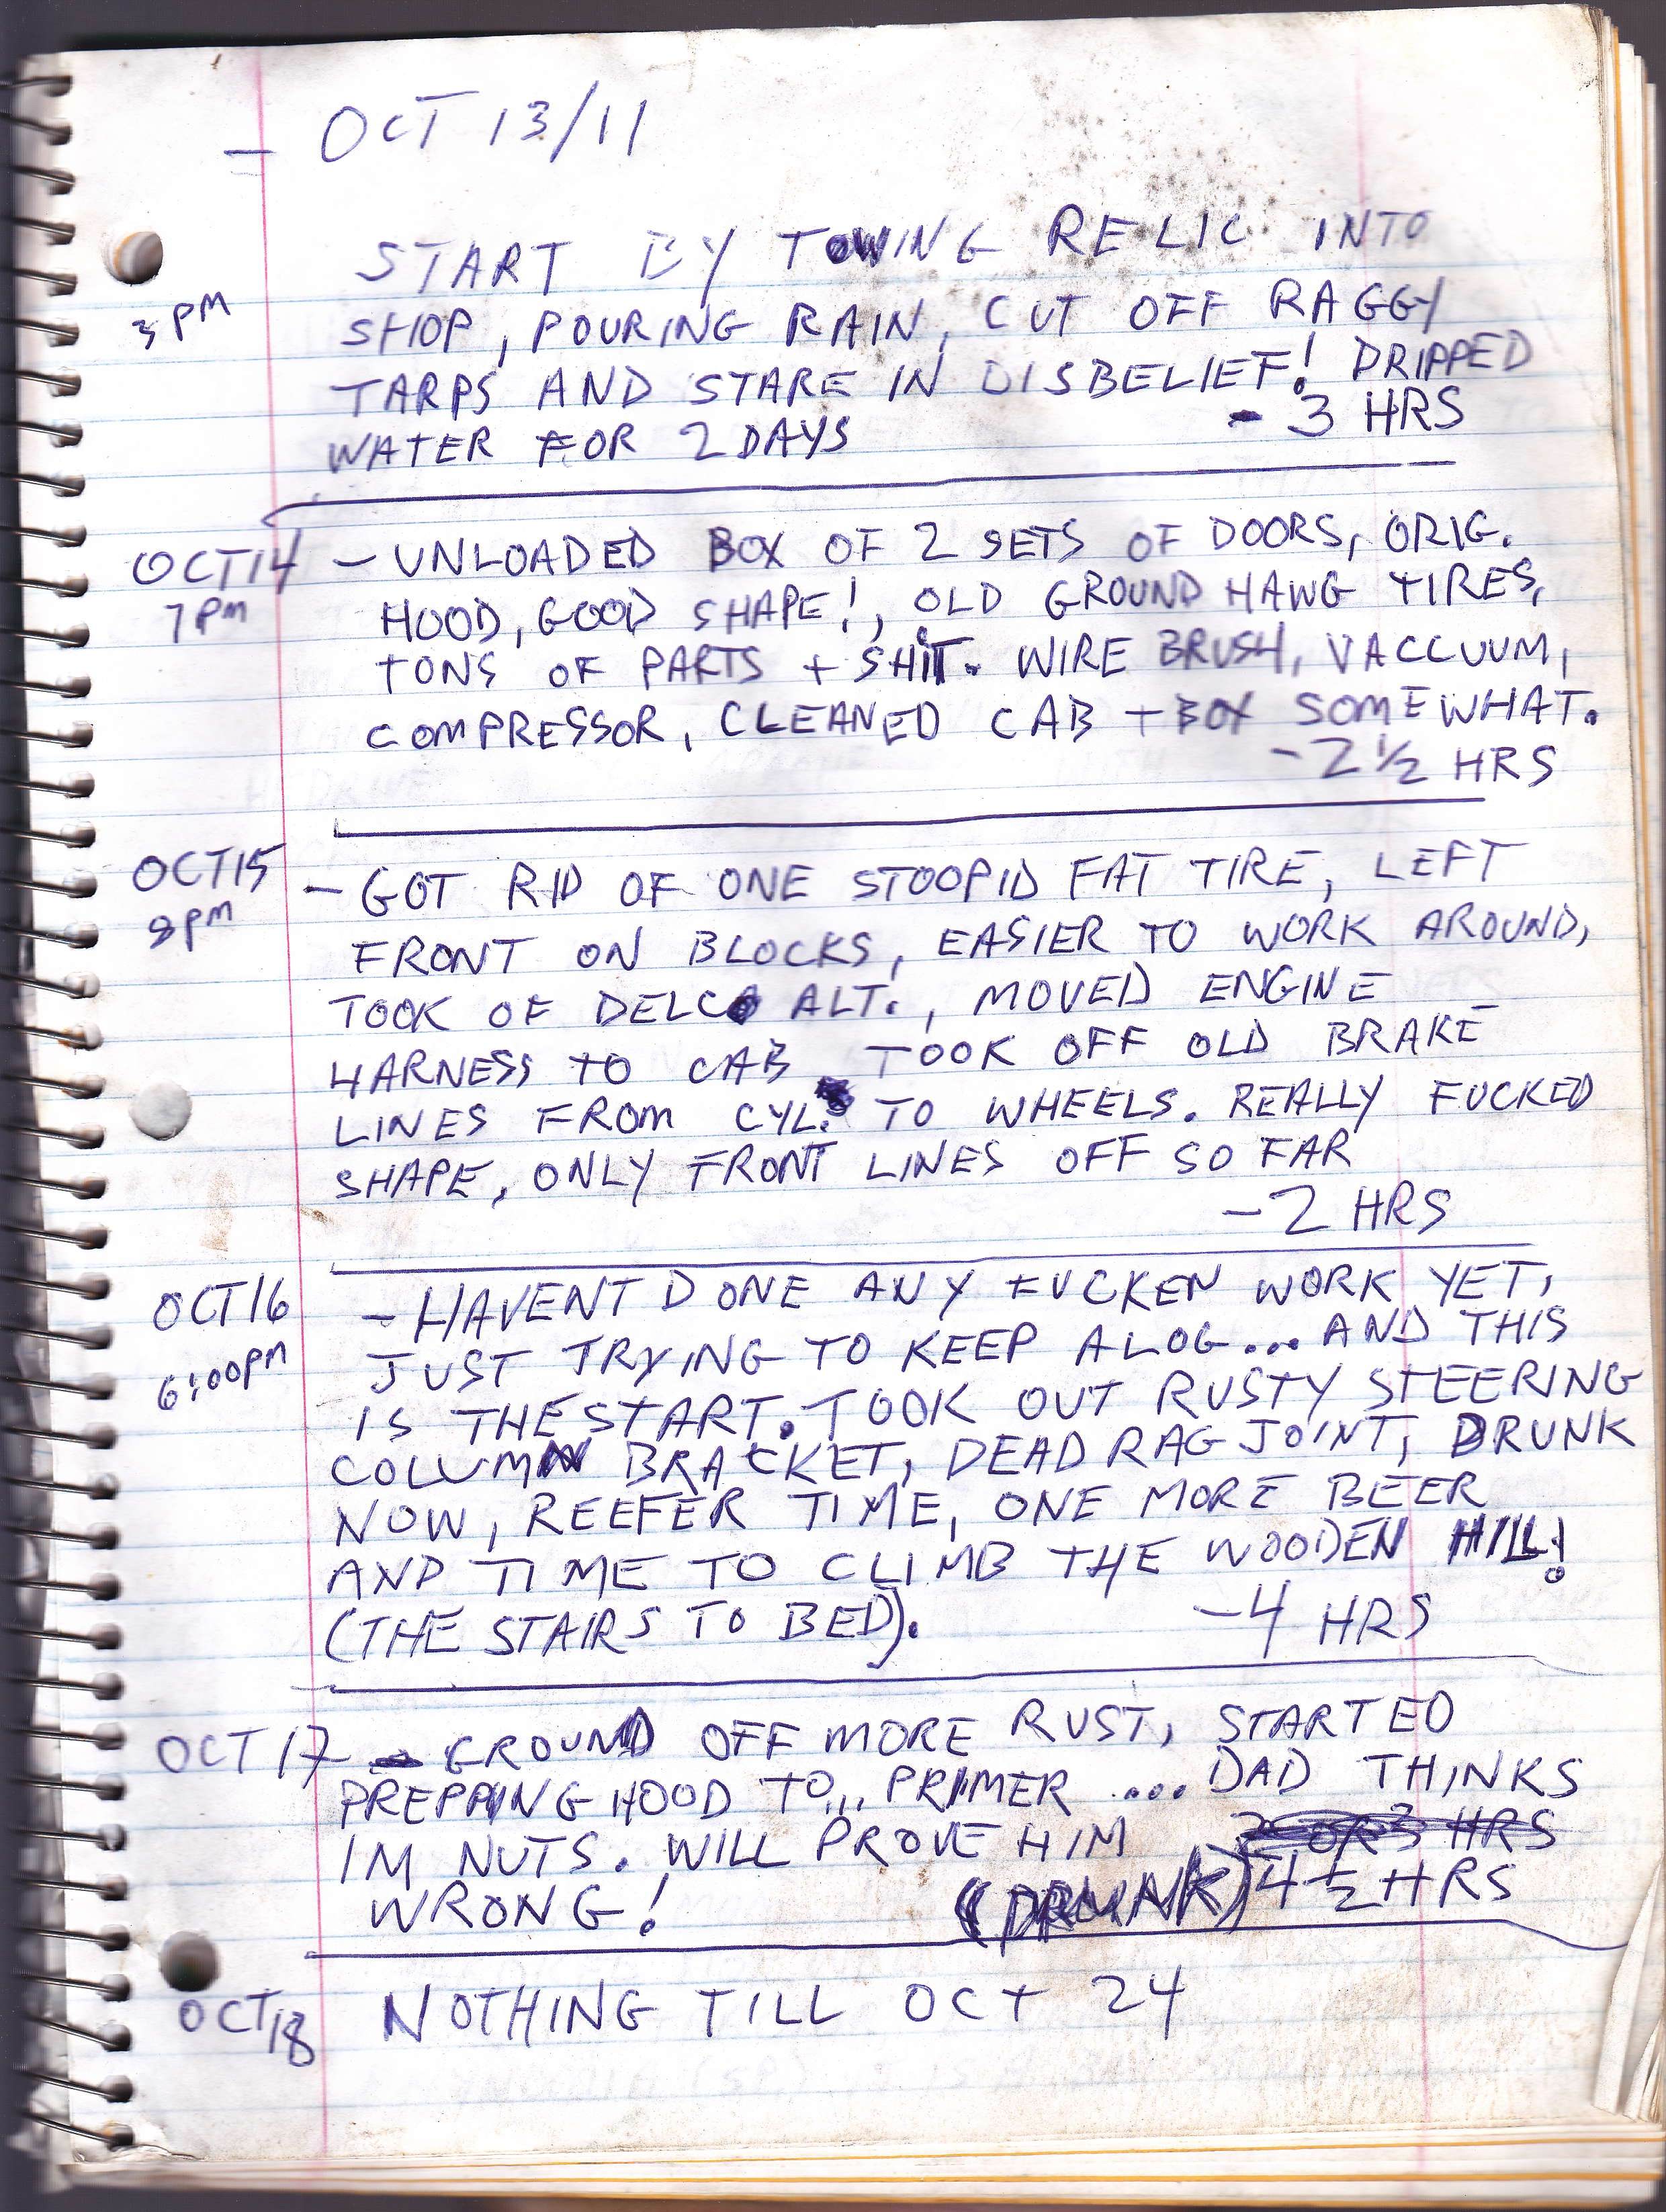 - OCT 13/11
START BY TOWING RELIC INTO
3 PM SHOP, POURING RAIN, CUT OFF RAGGY
TARPS AND STARE IN DISBELIEF! DRIPPED
WATER FOR 2 DAYS - 3 HRS
OCT 14 - UNLOADED BOX OF 2 SETS OF DOORS, ORIG.
7 PM HOOD, GOOD SHAPE!, OLD GROUND HAWG TIRES,
TONS OF PARTS + SHIT. WIRE BRUSH, VACCUUM,
COMPRESSOR, CLEANED CAB + BOX SOMEWHAT.
- 2 ½ HRS
OCT 15 - GOT RID OF ONE STOOPID FAT TIRE, LEFT
8 PM FRONT ON BLOCKS, EASIER TO WORK AROUND,
TOOK OF DELCO ALT., MOVED ENGINE
HARNESS TO CAB TOOK OFF OLD BRAKE
LINES FROM CYL. TO WHEELS. REALLY FUCKED
SHAPE, ONLY FRONT LINES OFF SO FAR
- 2 HRS
OCT 16 - HAVENT DONE ANY FUCKEN WORK YET,
6:00 PM JUST TRYING TO KEEP A LOG... AND THIS
IS THE START. TOOK OUT RUSTY STEERING
COLUMN BRACKET, DEAD RAG JOINT, DRUNK
NOW, REEFER TIME, ONE MORE BEER
AND TIME TO CLIMB THE WOODEN HILL!
(THE STAIRS TO BED). - 4 HRS
OCT 17 - GROUND OFF MORE RUST, STARTED
PREPPING HOOD TO... PRIMER ... DAD THINKS
IM NUTS. WILL PROVE HIM 2 OR 3 HRS
WRONG! (DRUNK) 4 ½ HRS
OCT 18 NOTHING TILL OCT 24